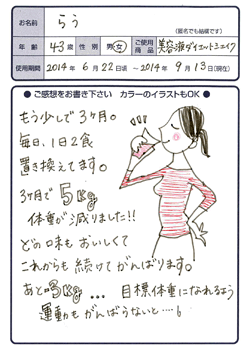 お名前 らう
(匿名でも結構です)
年齢 43歳 性別 男・女 ご使用商品 美容液ダイエットシェイク
使用期間 2014年 6月 22日頃 〜 2014年 9月 13日(現在)
●ご感想をお書き下さい カラーのイラストもOK●
もう少しで3ヶ月。
毎日、1日2食
置き換えてます。
3ヶ月で5Kg
体重が減りました!!
どの味もおいしくて
これからも続けてがんばります。
あと-3Kg... 目標体重になれるよう
運動もがんばらないと...